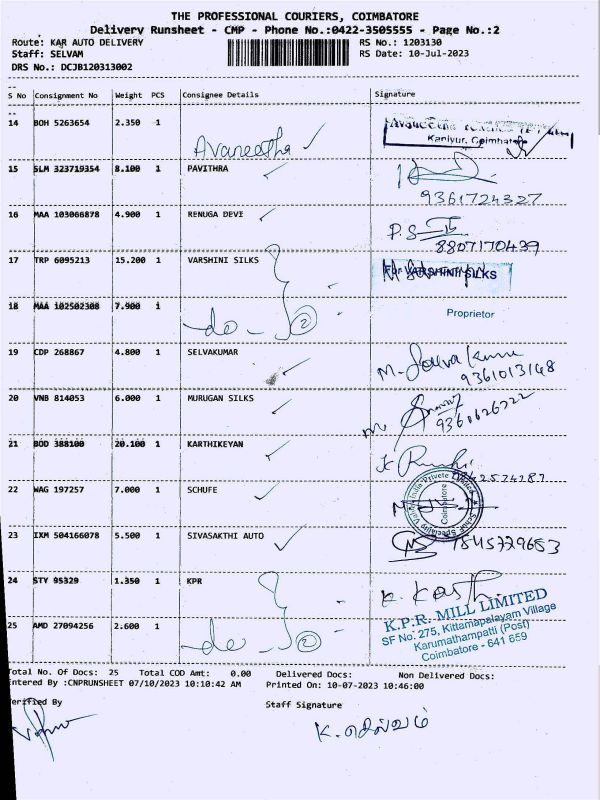 THE PROFESSIONAL COURIERS, COIMBATORE
Delivery Runsheet - CMP - Phone No.:0422-3505555 - Page No.:2
Route: KAR AUTO DELIVERY RS No.: 1203130
Staff: SELVAM RS Date: 10-Jul-2023
DRS No.: DCJB120313002
S No Consignment No Weight PCS Consignee Details Signature
14 BOH 5263654 2.350 1 Avaneetha
Kaniyur, Coimbatore
15 SLM 323719354 8.100 1 PAVITHRA
9361724327
16 MAA 103066878 4.900 1 RENUGA DEVI P.S
8807170439
17 TRP 6095213 15.200 1 VARSHINI SILKS For VARSHINI SILKS
18 MAA 102502308 7.900 1 Proprietor
-do- 2
19 CDP 268867 4.800 1 SELVAKUMAR M. Selva Kumar
9361013148
20 VNB 814053 6.000 1 MURUGAN SILKS
9360626222
21 BOD 388100 20.100 1 KARTHIKEYAN
22 WAG 197257 7.000 1 SCHUFE
Coimbatore
23 IXM 504166078 5.500 1 SIVASAKTHI AUTO
24 STY 95329 1.350 1 KPR
K.P.R. MILL LIMITED
SF No: 275, Kittampalayam Village
25 AMD 27094256 2.600 1 Karumathampatti (Post)
-do- 2 Coimbatore - 641 659
Total No. Of Docs: 25 Total COD Amt: 0.00 Delivered Docs: Non Delivered Docs:
Entered By :CNPRUNSHEET 07/10/2023 10:10:42 AM Printed On: 10-07-2023 10:46:00
Verified By Staff Signature
K. செல்வம்